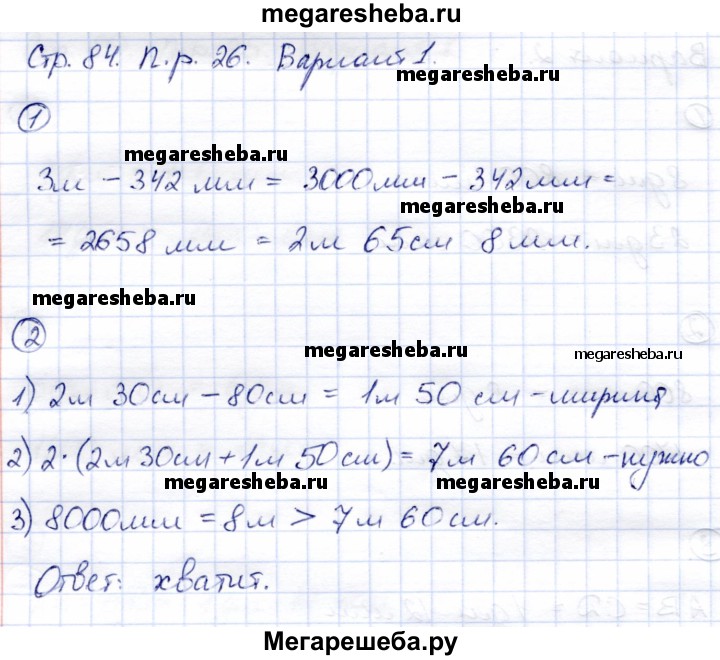 megaresheba.ru
Стр. 84. П. р. 26. Вариант 1.
megaresheba.ru
1
megaresheba.ru
3м - 342 мм = 3000мм - 342мм =
megaresheba.ru
= 2658 мм = 2м 65см 8мм.
megaresheba.ru
2
megaresheba.ru
megaresheba.ru
1) 2м 30см - 80см = 1м 50 см - ширина
2) 2·(2м 30см + 1м 50см) = 7м 60см - нужно
megaresheba.ru megaresheba.ru
3) 8000мм = 8м > 7м 60см.
Ответ: хватит.
Мегарешеба.ру